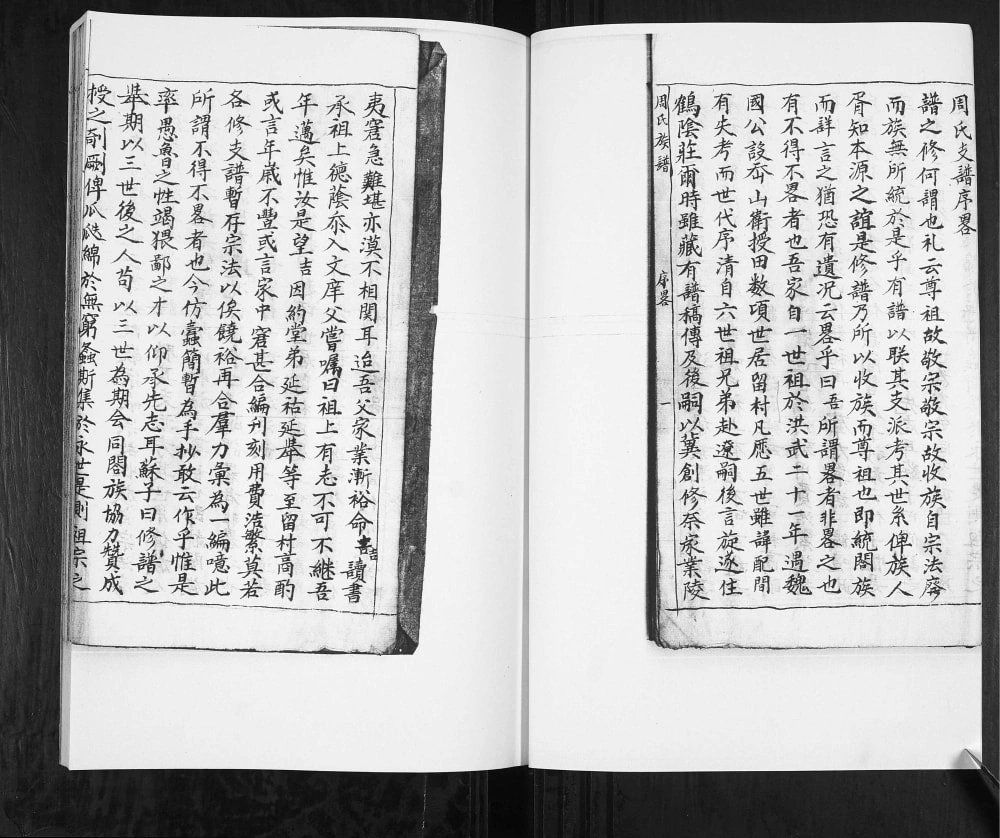 周氏支譜序畧
譜之修何謂也礼云尊祖故敬宗敬宗故收族自宗法廢
而族無所統於是乎有譜以联其支派考其世系俾族人
胥知本源之誼是修譜乃所以收族而尊祖也即統閤族
而詳言之猶恐有遺况云畧乎曰吾所謂畧者非畧之也
有不得不畧者也吾家自一世祖於洪武二十一年遇魏
國公設夼山衛授田数項世居留村凡應五世雖諱配間
有失考而世代序清自六世祖兄弟赴遼嗣後言旋遂住
鶴陰莊爾時雖藏有譜稿傳及後嗣以冀創修奈家業陵
周氏族譜
序畧
一
夷窘急難堪亦漠不相関耳迨吾父家業漸裕命吉讀書
承祖上德蔭忝入文庠父嘗嘱曰祖上有志不可不継吾
年邁矣惟汝是望吉因約堂弟延祜延舉等至留村商酌
或言年歲不豐或言家中窘甚合編刋刻用費浩繁莫若
各修支譜暫存宗法以俟饒裕再合羣力彙為一編噫此
所謂不得不畧者也今仿蠧簡暫為手抄敢云作乎惟是
率愚魯之性竭猥鄙之才以仰承先志耳蘇子曰修譜之
舉期以三世後之人苟以三世為期会同閤族協力贊成
授之剞劂俾瓜瓞綿於無窮螽斯集於永世是則祖宗之